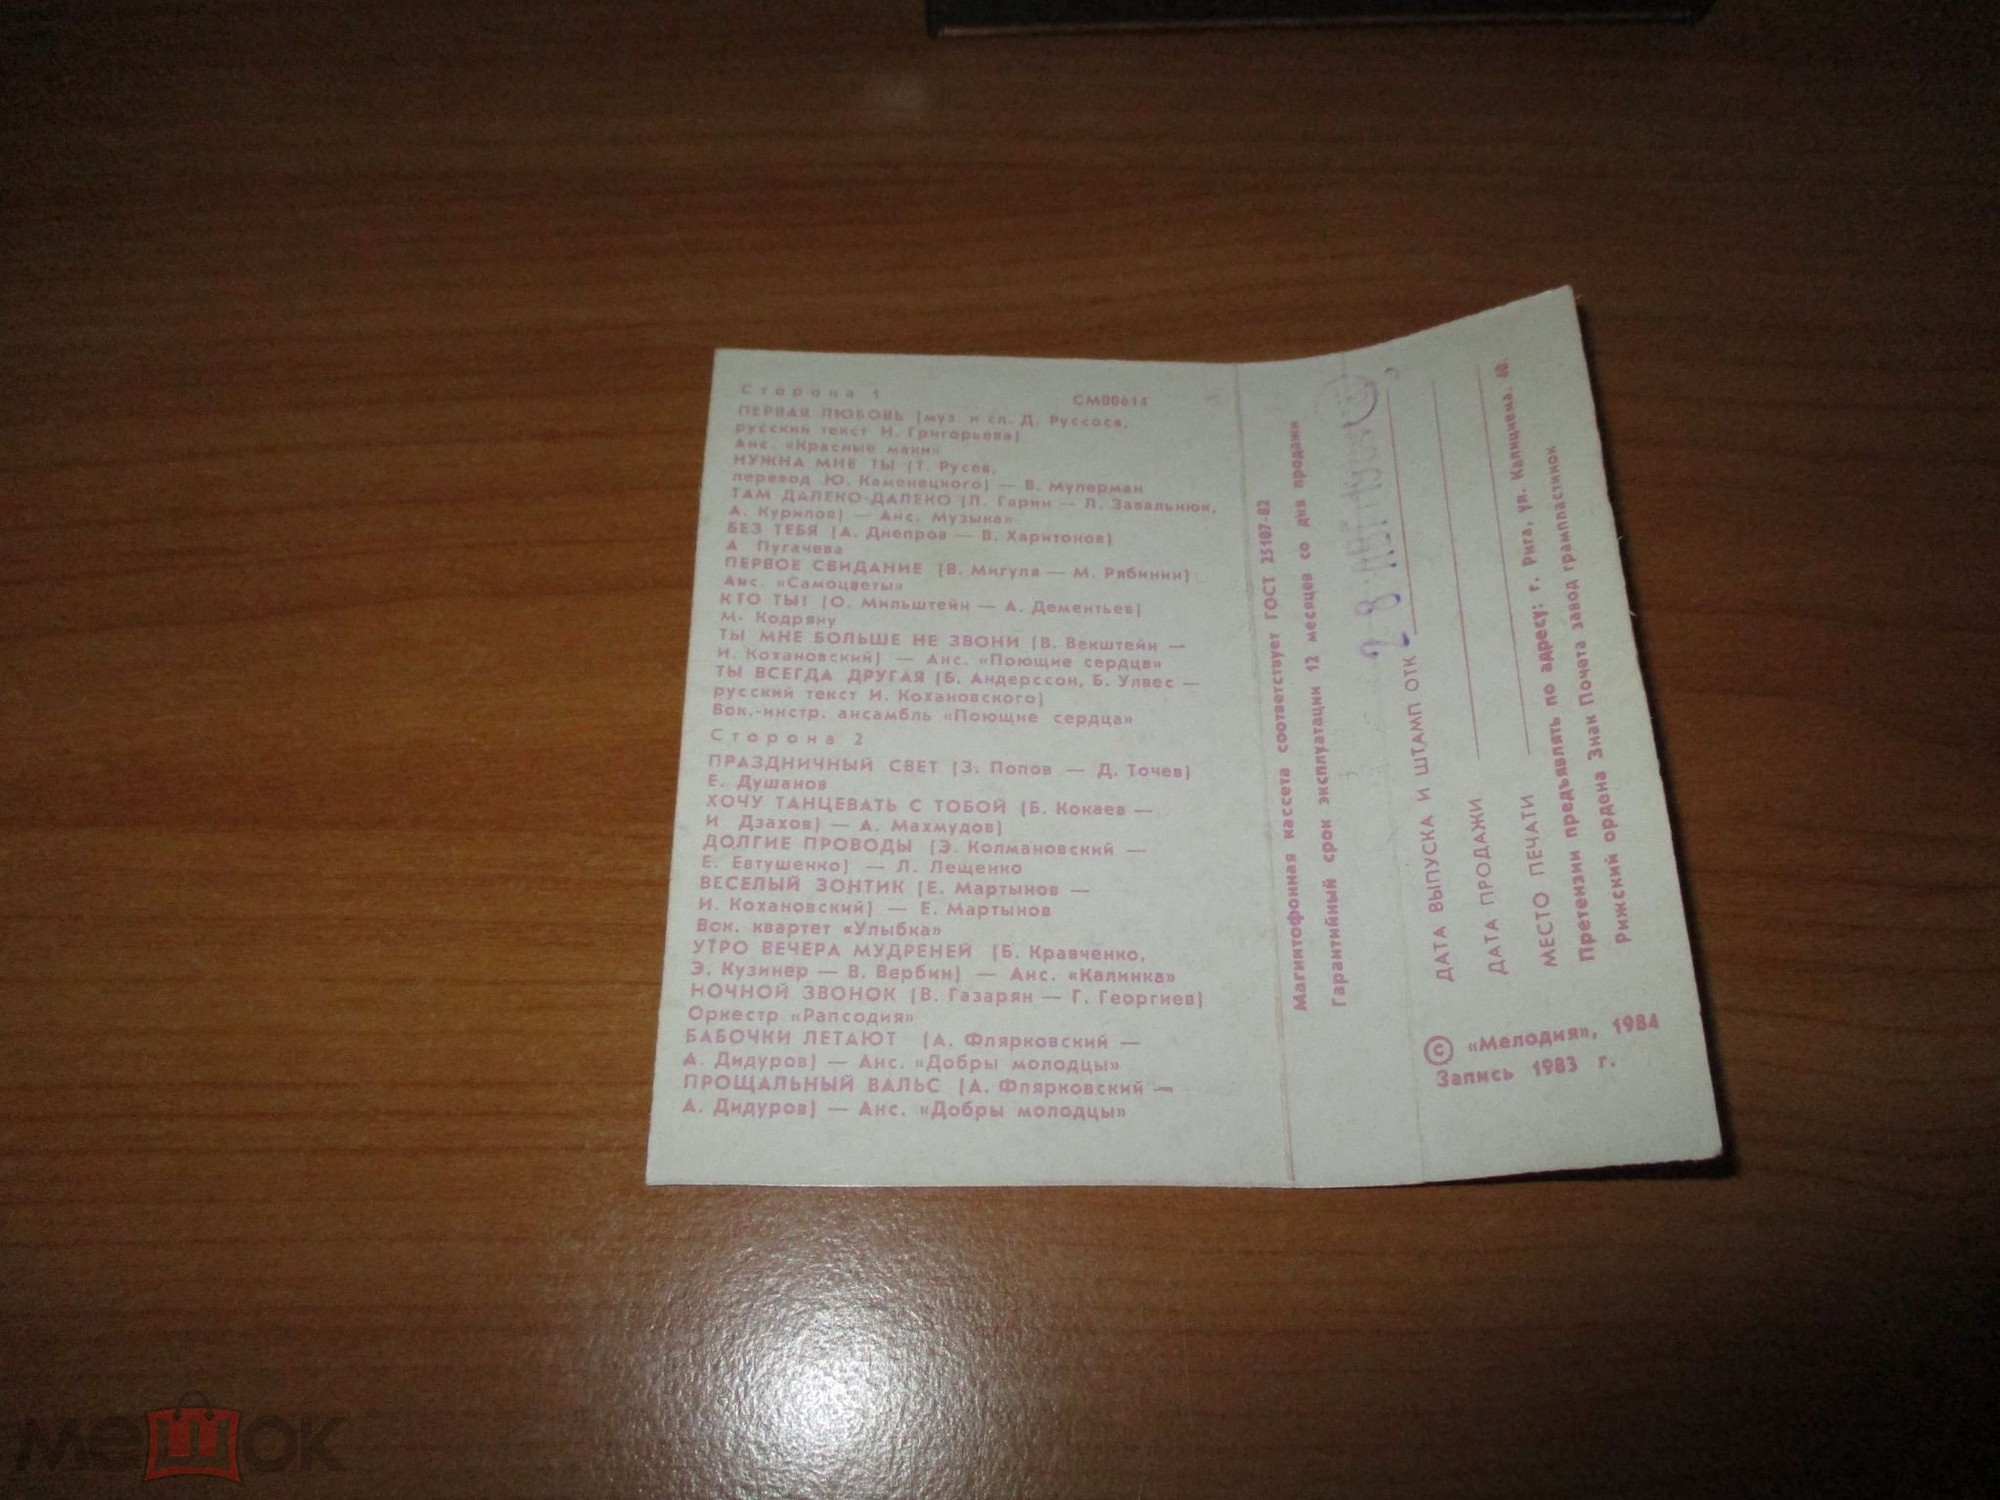 Сторона 1
СМ00614
ПЕРВАЯ ЛЮБОВЬ (муз. и сл. Д. Руссоса,
русский текст Н. Григорьева)
Анс. «Красные маки»
НУЖНА МНЕ ТЫ (Т. Русев,
перевод Ю. Каменецкого) — В. Мулерман
ТАМ ДАЛЕКО-ДАЛЕКО (Л. Гарин — Л. Завальнюк,
А. Курилов) — Анс. Музыка»
БЕЗ ТЕБЯ (А. Днепров — В. Харитонов)
А. Пугачева
ПЕРВОЕ СВИДАНИЕ (В. Мигуля — М. Рябинин)
Анс. «Самоцветы»
КТО ТЫ? (О. Мильштейн — А. Дементьев)
М. Кодряну
ТЫ МНЕ БОЛЬШЕ НЕ ЗВОНИ (В. Векштейн —
И. Кохановский) — Анс. «Поющие сердца»
ТЫ ВСЕГДА ДРУГАЯ (Б. Андерссон, Б. Улвес —
русский текст И. Кохановского)
Вок.-инстр. ансамбль «Поющие сердца»
Сторона 2
ПРАЗДНИЧНЫЙ СВЕТ (З. Попов — Д. Точев)
Е. Душанов
ХОЧУ ТАНЦЕВАТЬ С ТОБОЙ (Б. Кокаев —
И. Дзахов) — А. Махмудов)
ДОЛГИЕ ПРОВОДЫ (Э. Колмановский —
Е. Евтушенко) — Л. Лещенко
ВЕСЕЛЫЙ ЗОНТИК (Е. Мартынов —
И. Кохановский) — Е. Мартынов
Вок. квартет «Улыбка»
УТРО ВЕЧЕРА МУДРЕНЕЙ (Б. Кравченко,
Э. Кузинер — В. Вербин) — Анс. «Калинка»
НОЧНОЙ ЗВОНОК (В. Газарян — Г. Георгиев)
Оркестр «Рапсодия»
БАБОЧКИ ЛЕТАЮТ (А. Флярковский —
А. Дидуров) — Анс. «Добры молодцы»
ПРОЩАЛЬНЫЙ ВАЛЬС (А. Флярковский —
А. Дидуров) — Анс. «Добры молодцы»
Магнитофонная кассета соответствует ГОСТ 25107-82
Гарантийный срок эксплуатации 12 месяцев со дня продажи
ДАТА ВЫПУСКА И ШТАМП ОТК 28 АВГ 198
ДАТА ПРОДАЖИ
МЕСТО ПЕЧАТИ
Претензии предъявлять по адресу: г. Рига, ул. Калнциема, 40.
Рижский ордена Знак Почета завод грампластинок
© «Мелодия», 1984
Запись 1983 г.
мешок